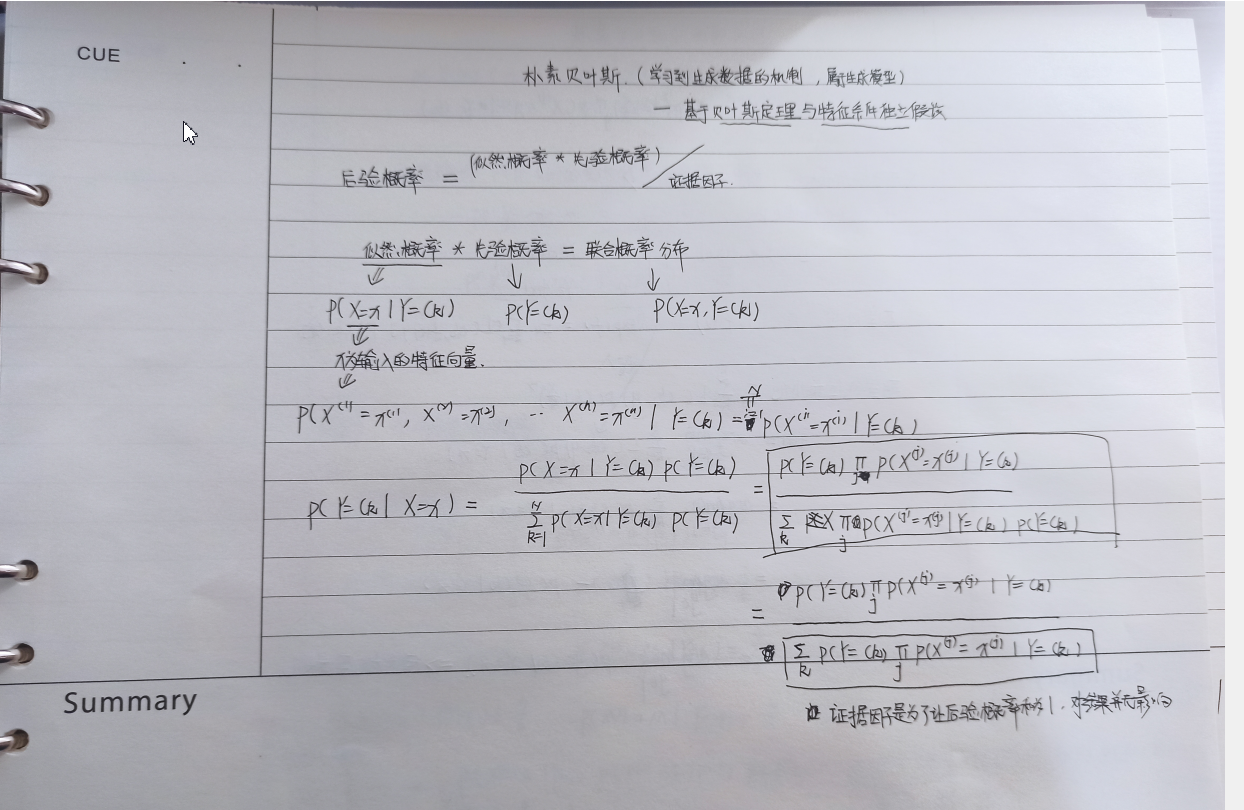 CUE
朴素贝叶斯.(学习到生成数据的机制,属于生成模型)
— 基于贝叶斯定理与特征条件独立假设
后验概率 = (似然概率 * 先验概率) / 证据因子.
似然概率 * 先验概率 = 联合概率分布
P(X=x|Y=Ck) P(Y=Ck) P(X=x,Y=Ck)
输入的特征向量.
P(X⁽¹⁾=x⁽¹⁾, X⁽²⁾=x⁽²⁾, ·· X⁽ⁿ⁾=x⁽ⁿ⁾ | Y=Ck) = ∏ P(X⁽ʲ⁾=x⁽ʲ⁾ | Y=Ck)
P(X=x | Y=Ck) P(Y=Ck)
P(Y=Ck) ∏ P(X⁽ʲ⁾=x⁽ʲ⁾ | Y=Ck)
P(Y=Ck | X=x) = =
N ∑ k=1 P(X=x|Y=Ck) P(Y=Ck)
∑ k ∏ j P(X⁽ʲ⁾=x⁽ʲ⁾ | Y=Ck) P(Y=Ck)
P(Y=Ck) ∏ j P(X⁽ʲ⁾=x⁽ʲ⁾ | Y=Ck)
=
∑ k P(Y=Ck) ∏ j P(X⁽ʲ⁾=x⁽ʲ⁾ | Y=Ck)
Summary
证据因子是为了让后验概率和为1.对结果并无影响